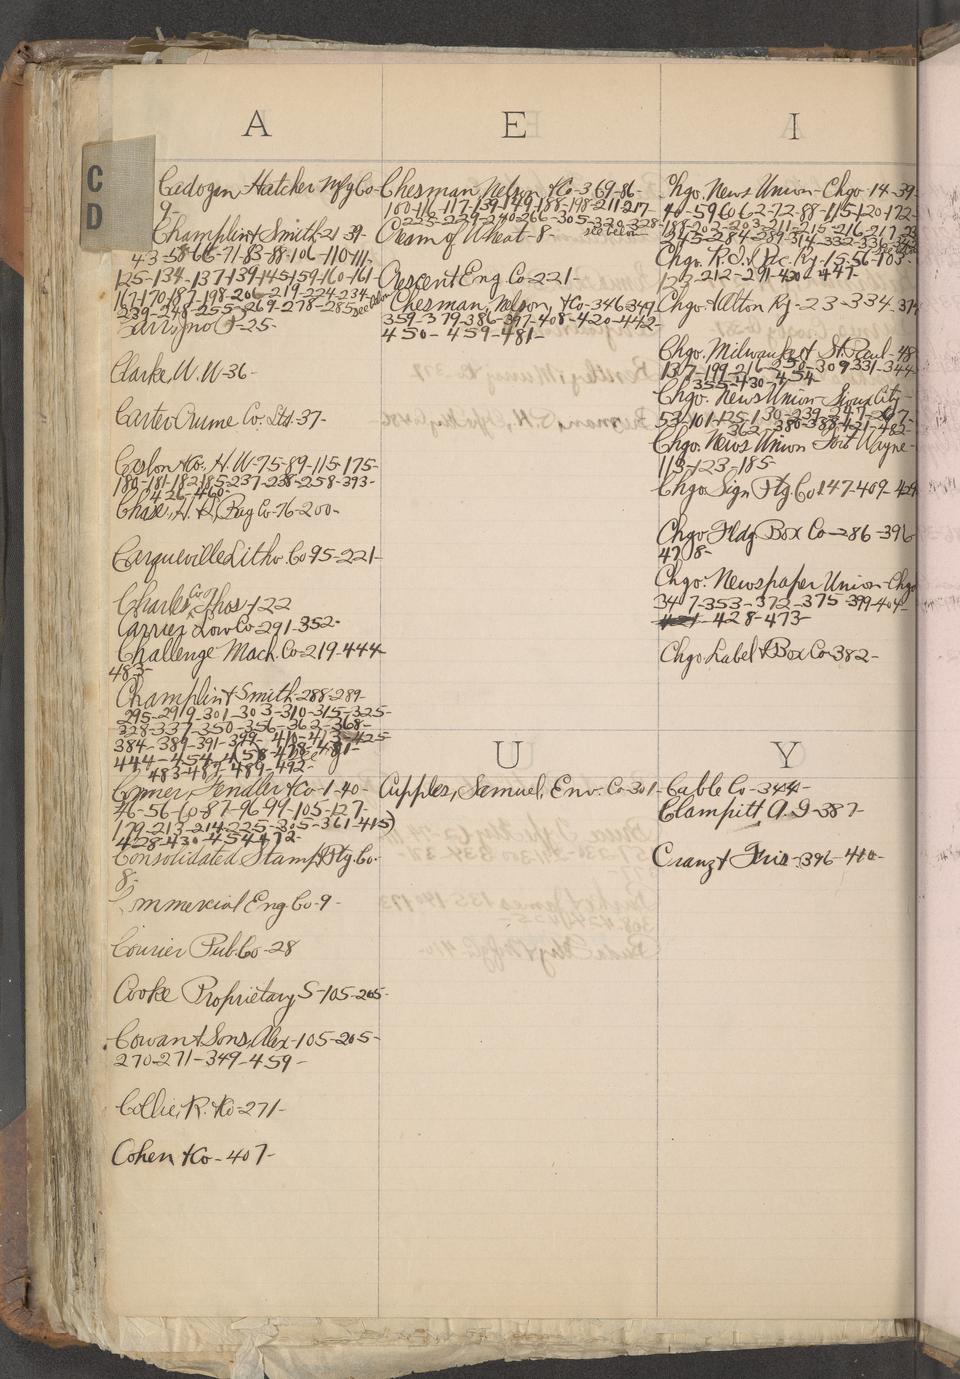 C
D
A
Cadogan Hatcher Mfg Co-
9-
Champlin & Smith-21-39-
43-58-66-71-83-88-106-110-111-
125-134-137-139-145-159-160-161-
167-170-187-198-206-219-224-234-
239-248-255-269-278-285 see below
-25-
Clarke, W. W-36-
Carter Crume Co. Ltd-37-
Caslon & Co., H. W-75-89-115-175-
180-181-182-185-237-238-258-393-
426-460-
Chase, H. R, Bag Co-76-200-
Carqueville Litho Co 95-221-
Charles Co Thos-122
Carrier Low Co-291-352-
Challenge Mach. Co-219-444-
483-
Champlin & Smith-288-289-
295-299-301-303-310-315-325-
328-337-350-356-362-368-
384-389-391-399-410-413-425
444-454-458-478-481-
483-487-489-492-
Comer, Fendler & Co-1-40-
46-56-60-87-96-99-105-127-
179-213-214-225-315-361-415
428-430-454-472-
Consolidated Stamp & Ptg. Co-
8-
Commercial Eng Co-9-
Courier Pub. Co-28
Cooke Proprietary S-105-205-
Cowan & Sons, Alex-105-205-
270-271-349-459-
Collie, R. & Co-271-
Cohen & Co-407-
E
Chesman, Nelson & Co-369-86-
100-116-117-139-149-188-198-211-217-
223-229-240-266-305-320-328-
see below
Cream of Wheat-8-
Crescent Eng. Co-221-
Chesman, Nelson, & Co-346-347-
359-379-386-397-408-420-442-
450-459-481-
U
Cupples, Samuel, Env. Co-301-
I
Chgo. News Union-Chgo-14-39-
40-59 60 62-72-88-115-120-172-
188-202-203-211-215-216-217-23
245-284-289-314-332-336-342
Chgo. R. I. & Pac. Ry-15-56-103-
123-212-291-420-447-
Chgo. & Alton Ry-23-334-374
Chgo. Milwaukee & St. Paul-48
137-199-216-250-309 331-344
355-430-454-
Chgo. News Union Sioux City-
53-101-125-130-239-247-267-
362-380-388-421-482-
Chgo. News Union Fort Wayne-
113-123-185-
Chgo Sign Ptg. Co 147-409-429
Chgo Fldg. Box Co-286-396
478-
Chgo. Newspaper Union-Chgo
347-353-372-375-399-404-
421-428-473-
Chgo. Label & Box Co-382-
Y
Cable Co-344-
Clampitt A. D-387-
Cranz & Iris-396-410-